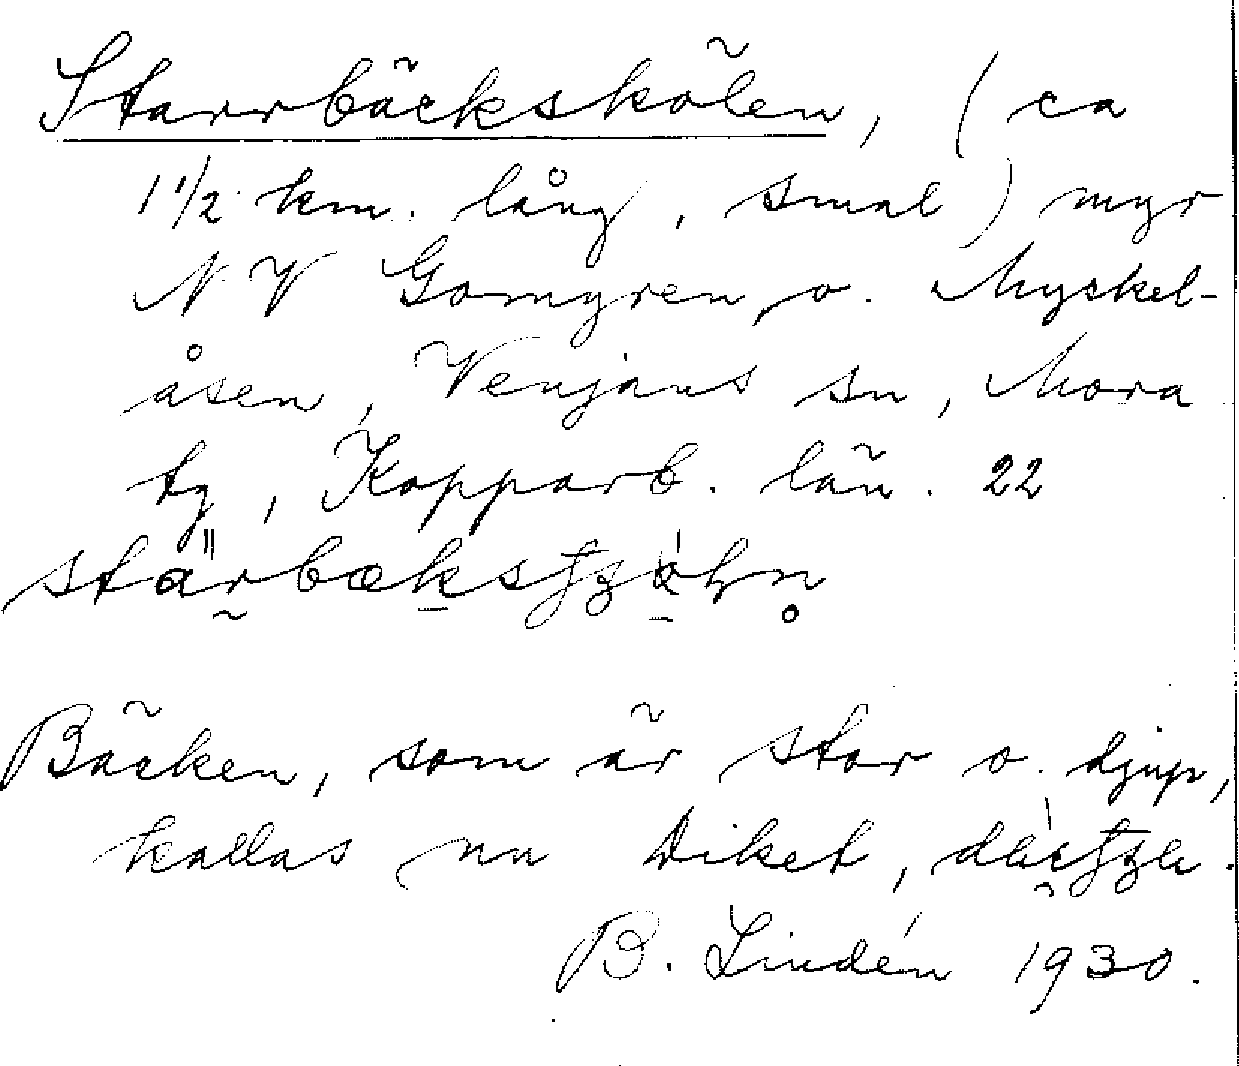 Starrbäckskölen, (ca
1 1/2 km. lång, smal) myr
N.V Gomyren o. Myckel-
åsen, Venjans sn, Mora
tg, Kopparb. län. 22
Bäcken, som är stor o. djup,
kallas nu Diket,
B. Lindén 1930.